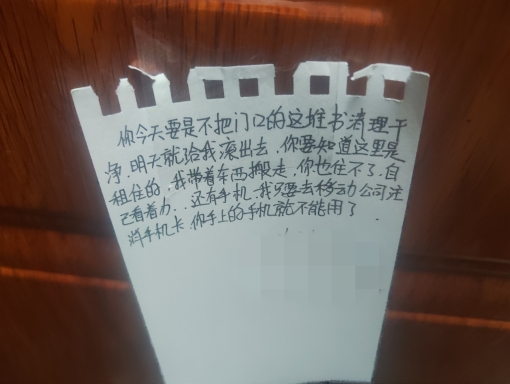 你今天要是不把门口的这堆书清理干
净.明天就给我滚出去.你要知道这里是
租住的,我带着东西搬走,你也住不了.自
己看着办..还有手机.我只要去移动公司注
消手机卡.你手上的手机就不能用了